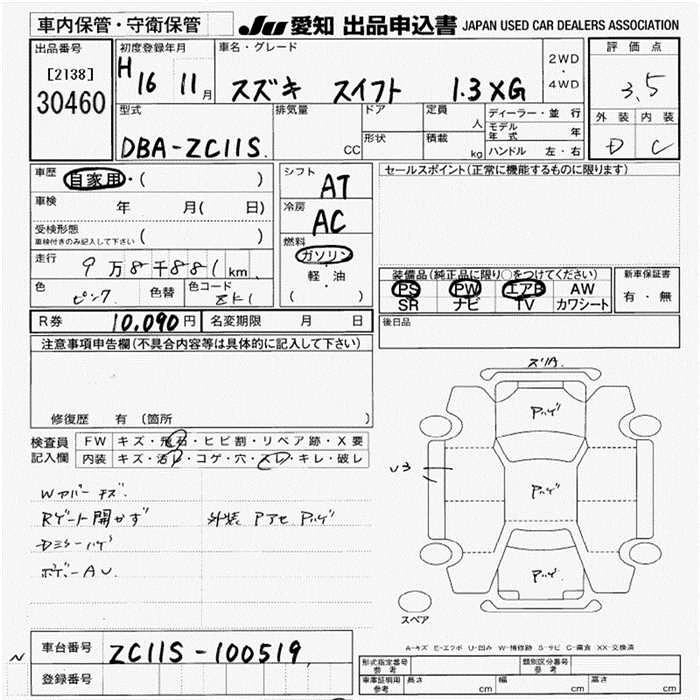 車内保管・守衛保管 JU 愛知 出品申込書 JAPAN USED CAR DEALERS ASSOCIATION
出品番号 初度登録年月 車名・グレード 2WD・4WD 評価点
[2138] H 16 11月 スズキ スイフト 1.3XG 3.5
30460 外装 内装
型式 排気量 ドア 定員 ディーラー・並行 D C
人 モデル年式 年
形状 積載 ハンドル 左・右
DBA-ZC11S CC kg
車歴 自家用・( ) シフト AT セールスポイント(正常に機能するものに限ります)
車検 年 月( 日) 冷房 AC
受検形態 ( )
車検付きのみ記入して下さい
燃料 ガソリン
走行 9万8千881km 軽・油 装備品(純正品に限り○をつけてください) 新車保証書
色 ピンク 色替 色コード ( ) PS PW エアB AW 有・無
SR ナビ TV カワシート
R券 10,090円 名変期限 月 日 後日品
注意事項申告欄(不具合内容等は具体的に記入して下さい)
修復歴 有 (箇所 )
検査員 FW キズ・飛石・ヒビ割・リペア跡・X要
記入欄 内装 キズ・汚レ・コゲ・穴・スレ・キレ・破レ
スリA
Pハゲ
U3 Pハゲ
Pハゲ
Rゲート開かず 外装 Pアセ Pハゲ
Dミラーハゲ
ボディーAU
スペア
A-キズ E-エクボ U-凹み W-補修跡 S-サビ C-腐食 XX-交換済
車台番号 ZC11S-100519
登録番号
形式指定番号 参考 類別区分番号 参考
車庫証明用 参考 長さ cm 幅 cm 高さ cm